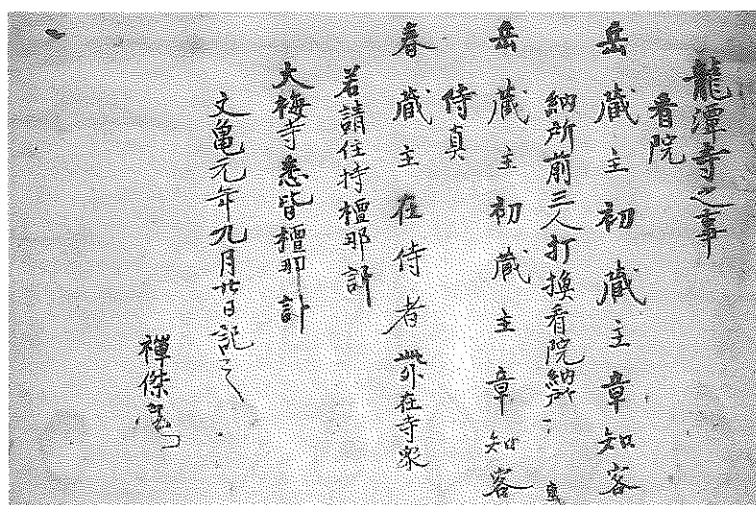 龍潭寺之事
看院
岳蔵主初蔵主章知客
納所前三人打換看院納所
岳蔵主初蔵主章知客
侍真
春蔵主在侍者此外在寺衆
若請住持檀那計
大梅寺悉皆檀那計
文亀元年九月廿日記之
禅傑